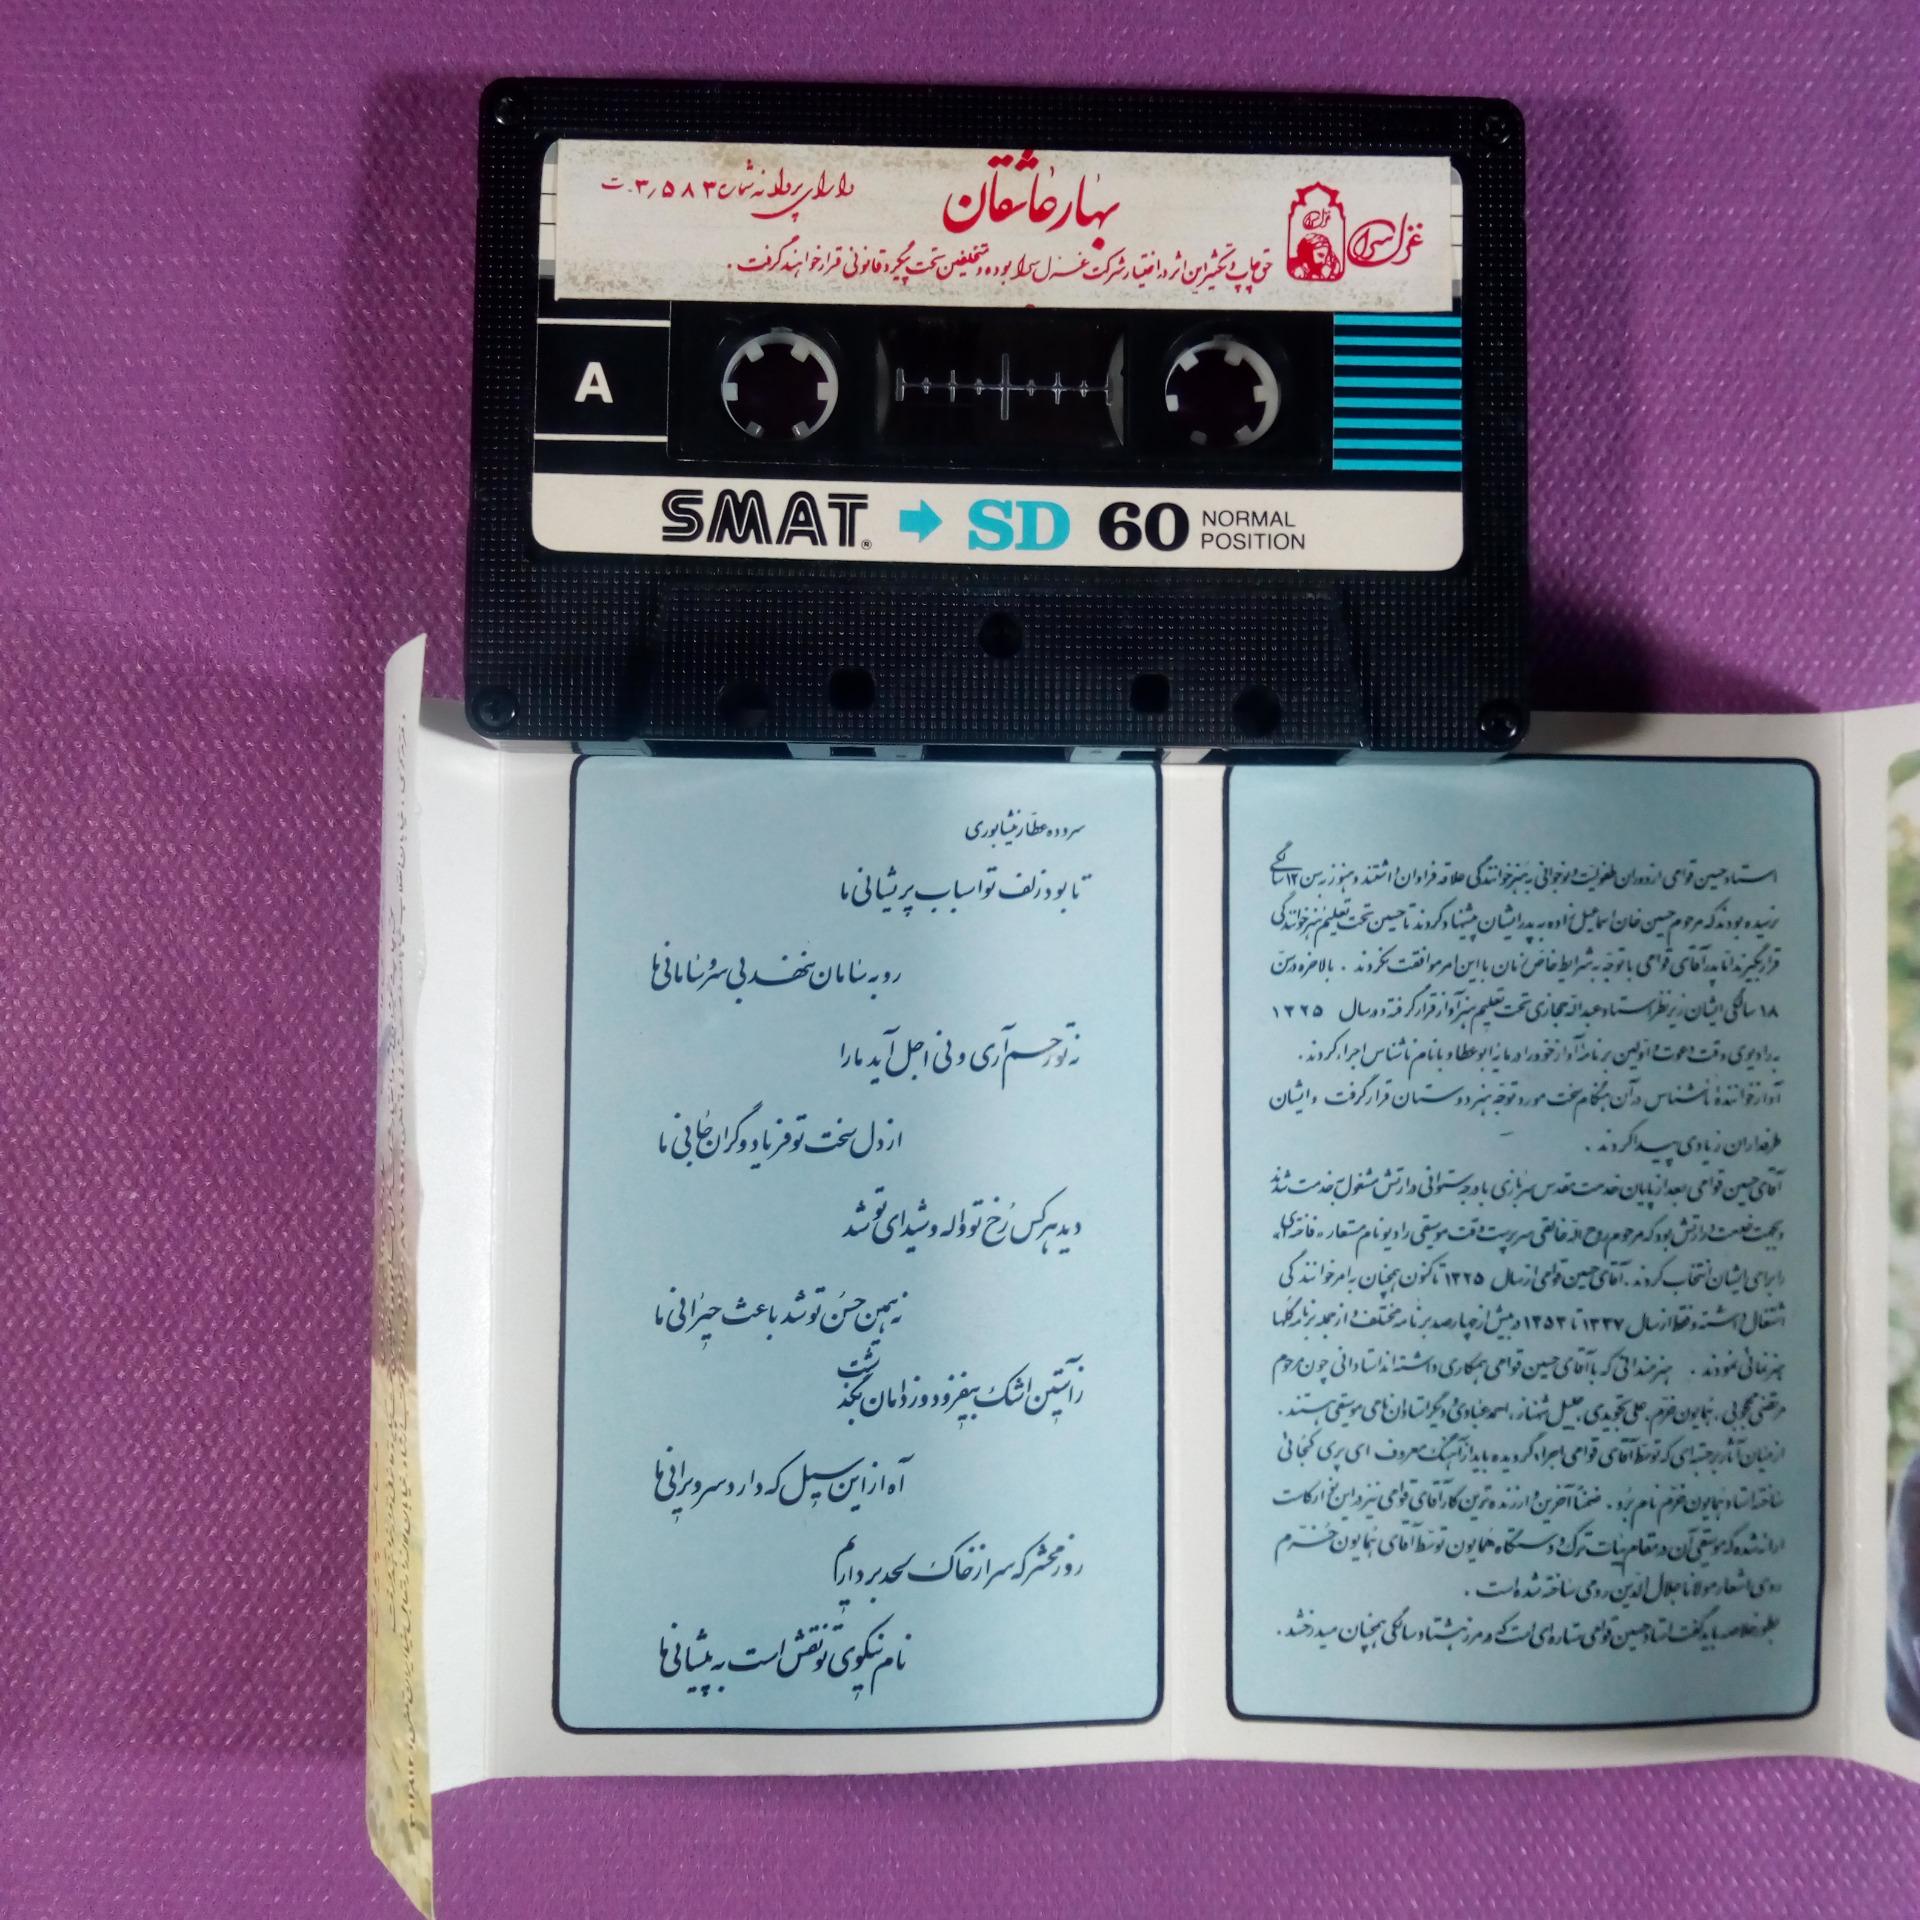 دارای پروانه شماره ۳٫۵۸۳ت
بهار عاشقان
غزل سرا
حق چاپ و تکثیر این اثر در اختیار شرکت غزل سرا بوده و متخلفین تحت پیگرد قانونی قرار خواهند گرفت .
A
SMAT® SD 60 NORMAL POSITION
استاد حسین قوامی از دوران طفولیت و نوجوانی به هنر خوانندگی علاقه فراوان داشتند و هنوز به سن ۱۲ سالگی
نرسیده بودند که مرحوم حسین خان اسماعیل زاده به پدر ایشان پیشنهاد کردند تا حسین تحت تعلیم هنر خوانندگی
قرار بگیرند اما پدر آقای قوامی با توجه به شرایط خاص زمان با این امر موافقت نکردند . بالاخره در سن
۱۸ سالگی ایشان زیر نظر استاد عبداله حجازی تحت تعلیم هنر آواز قرار گرفته و در سال ۱۳۲۵
به رادیوی وقت دعوت و اولین برنامه آواز خود را در مایه ابوعطا و با نام ناشناس اجراء کردند .
آواز خوانندهٔ ناشناس در آن هنگام سخت مورد توجه هنردوستان قرار گرفت و ایشان
طرفداران زیادی پیدا کردند .
آقای حسین قوامی بعد از پایان خدمت مقدس سربازی با درجه ستوانی در ارتش مشغول به خدمت شدند
و بجهت خدمت در ارتش بود که مرحوم روح اله خالقی سرپرست وقت موسیقی رادیو نام مستعار «فاخته ای»
را برای ایشان انتخاب کردند . آقای حسین قوامی از سال ۱۳۲۵ تاکنون همچنان به امر خوانندگی
اشتغال داشته و فقط از سال ۱۳۳۷ تا ۱۳۵۳ در بیش از چهارصد برنامه مختلف و از جمله برنامه گلها
هنرنمائی نمودند . هنرمندانی که با آقای حسین قوامی همکاری داشته اند استادانی چون مرحوم
مرتضی محجوبی ، همایون خرم ، علی تجویدی ، جلیل شهناز ، احمد عبادی و دیگر استادان نامی موسیقی هستند .
از میان آثار برجسته ای که توسط آقای قوامی اجراء گردیده باید از آهنگ معروف ای پری کجائی
ساخته استاد همایون خرم نام برد . ضمناً آخرین و ارزنده ترین کار آقای قوامی نیز در این نوار کاست
ارائه شده که موسیقی آن در مقام بیات ترک و دستگاه همایون توسط آقای همایون خرم
روی اشعار مولانا جلال الدین رومی ساخته شده است .
بطور خلاصه باید گفت استاد حسین قوامی ستاره ای است که در مرز هشتاد سالگی همچنان میدرخشد .
سروده عطار نیشابوری
تا بود زلف تو اسباب پریشانی ما
رو به سامان ننهد بی سر و سامانی ها
نه تو رحم آری و نی اجل آید ما را
از دل سخت تو فریاد و گران جانی ما
دید هر کس رُخ تو واله و شیدای تو شد
نه همین حُسن تو شد باعث حیرانی ما
ز آستین اشک بیفزود و ز دامان بگذشت
آه از این سیل که دارد سر ویرانی ها
روز محشر که سر از خاک لحد برداریم
نام نیکوی تو نقش است به پیشانی ها